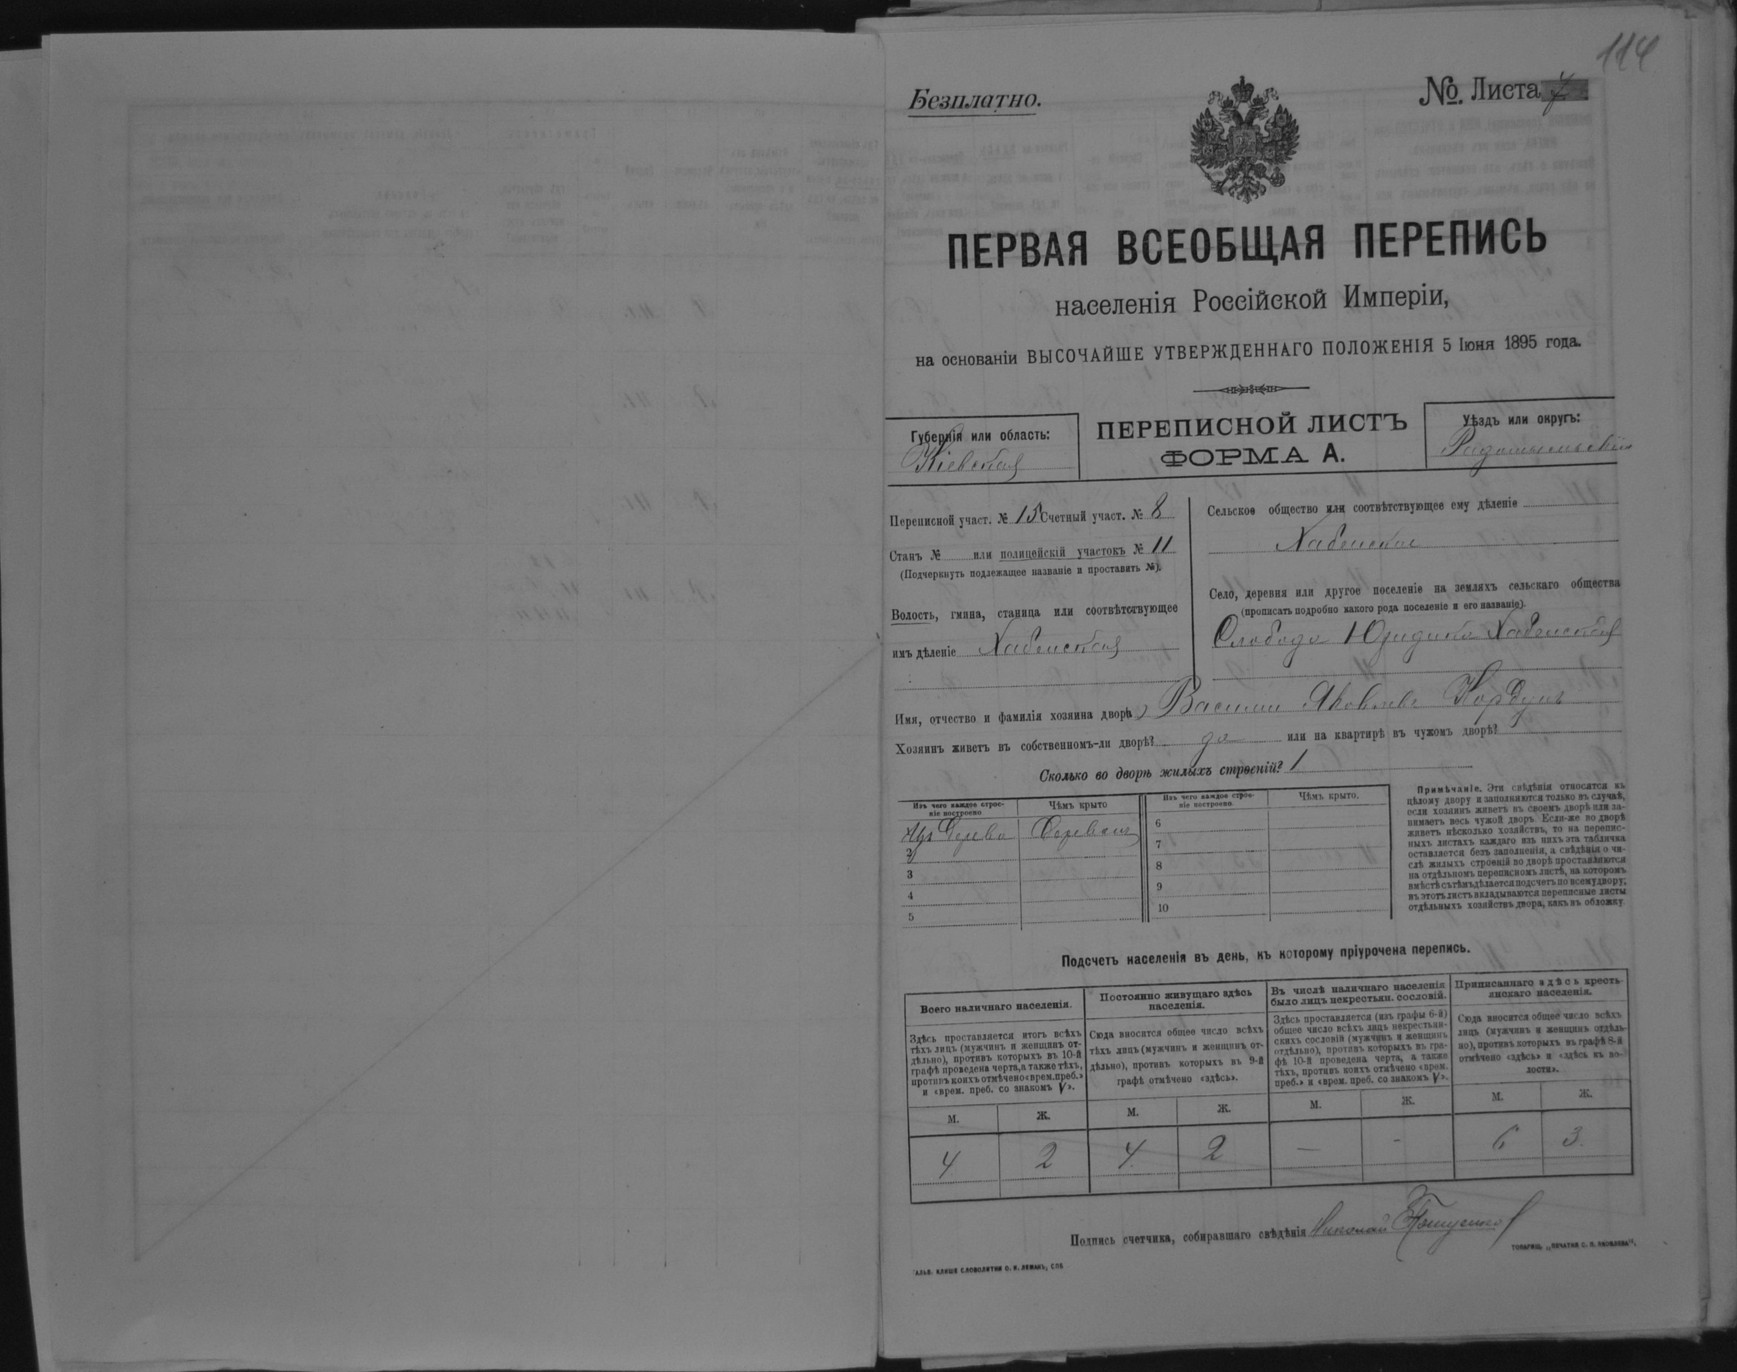 114
Безплатно.
№. Листа 7
ПЕРВАЯ ВСЕОБЩАЯ ПЕРЕПИСЬ
населенія Россійской Имперіи,
на основаніи ВЫСОЧАЙШЕ УТВЕРЖДЕННАГО ПОЛОЖЕНІЯ 5 Іюня 1895 года.
Губернія или область:
Кіевская
ПЕРЕПИСНОЙ ЛИСТЪ
ФОРМА А.
Уѣздъ или округъ:
Радомысльскій
Переписной участ. № 15 Счетный участ. № 8
Станъ № или полицейскій участокъ № 11
(Подчеркнуть подлежащее названіе и проставить №).
Волость, гмина, станица или соотвѣтствующее
имъ дѣленіе Хабенская
Сельское общество или соотвѣтствующее ему дѣленіе
Хабенское
Село, деревня или другое поселеніе на земляхъ сельскаго общества
(прописать подробно какого рода поселеніе и его названіе).
Слобода Юридика Хабенская
Имя, отчество и фамилія хозяина двора Василій Яковлевъ
Хозяинъ живетъ въ собственномъ-ли дворѣ? да или на квартирѣ въ чужомъ дворѣ?
Сколько во дворѣ жилыхъ строеній? 1
Изъ чего каждое строе-
ніе построено
Чѣмъ крыто
Изъ чего каждое строе-
ніе построено.
Чѣмъ крыто.
Изъ дерева
Деревомъ
2
3
4
5
6
7
8
9
10
Примѣчаніе. Эти свѣдѣнія относятся къ
цѣлому двору и заполняются только въ случаѣ,
если хозяинъ живетъ въ своемъ дворѣ или за-
нимаетъ весь чужой дворъ. Если-же во дворѣ
живетъ нѣсколько хозяйствъ, то на перепис-
ныхъ листахъ каждаго изъ нихъ эта табличка
оставляется безъ заполненія, а свѣдѣнія о чи-
слѣ жилыхъ строеній во дворѣ проставляются
на отдѣльномъ переписномъ листѣ, на которомъ
вмѣстѣ съ тѣмъ дѣлается подсчетъ по всему двору;
въ этотъ листъ вкладываются переписные листы
отдѣльныхъ хозяйствъ двора, какъ въ обложку.
Подсчетъ населенія въ день, къ которому пріурочена перепись.
Всего наличнаго населенія.
Здѣсь проставляется итогъ всѣхъ
тѣхъ лицъ (мужчинъ и женщинъ от-
дѣльно), противъ которыхъ въ 10-й
графѣ проведена черта, а также тѣхъ,
противъ коихъ отмѣчено «врем. преб.»
и «врем. преб. со знакомъ V».
Постоянно живущаго здѣсь
населенія.
Сюда вносится общее число всѣхъ
тѣхъ лицъ (мужчинъ и женщинъ от-
дѣльно), противъ которыхъ въ 9-й
графѣ отмѣчено «здѣсь».
Въ числѣ наличнаго населенія
было лицъ некрестьян. сословій.
Здѣсь проставляется (изъ графы 6-й)
общее число всѣхъ лицъ некрестьян-
скихъ сословій (мужчинъ и женщинъ
отдѣльно), противъ которыхъ въ гра-
фѣ 10-й проведена черта, а также
тѣхъ, противъ коихъ отмѣчено «врем.
преб.» и «врем. преб. со знакомъ V».
Приписаннаго здѣсь кресть-
янскаго населенія.
Сюда вносится общее число всѣхъ
лицъ (мужчинъ и женщинъ отдѣль-
но), противъ которыхъ въ графѣ 8-й
отмѣчено «здѣсь» и «здѣсь къ во-
лости».
М. Ж. М. Ж. М. Ж. М. Ж.
4 2 4 2 — - 6 3
Подпись счетчика, собиравшаго свѣдѣнія Николай
ГАЛЬВ. КЛИШЕ СЛОВОЛИТНИ О. И. ЛЕМАНЪ, СПБ
ТОВАРИЩ. „ПЕЧАТНИ С. П. ЯКОВЛЕВА“.